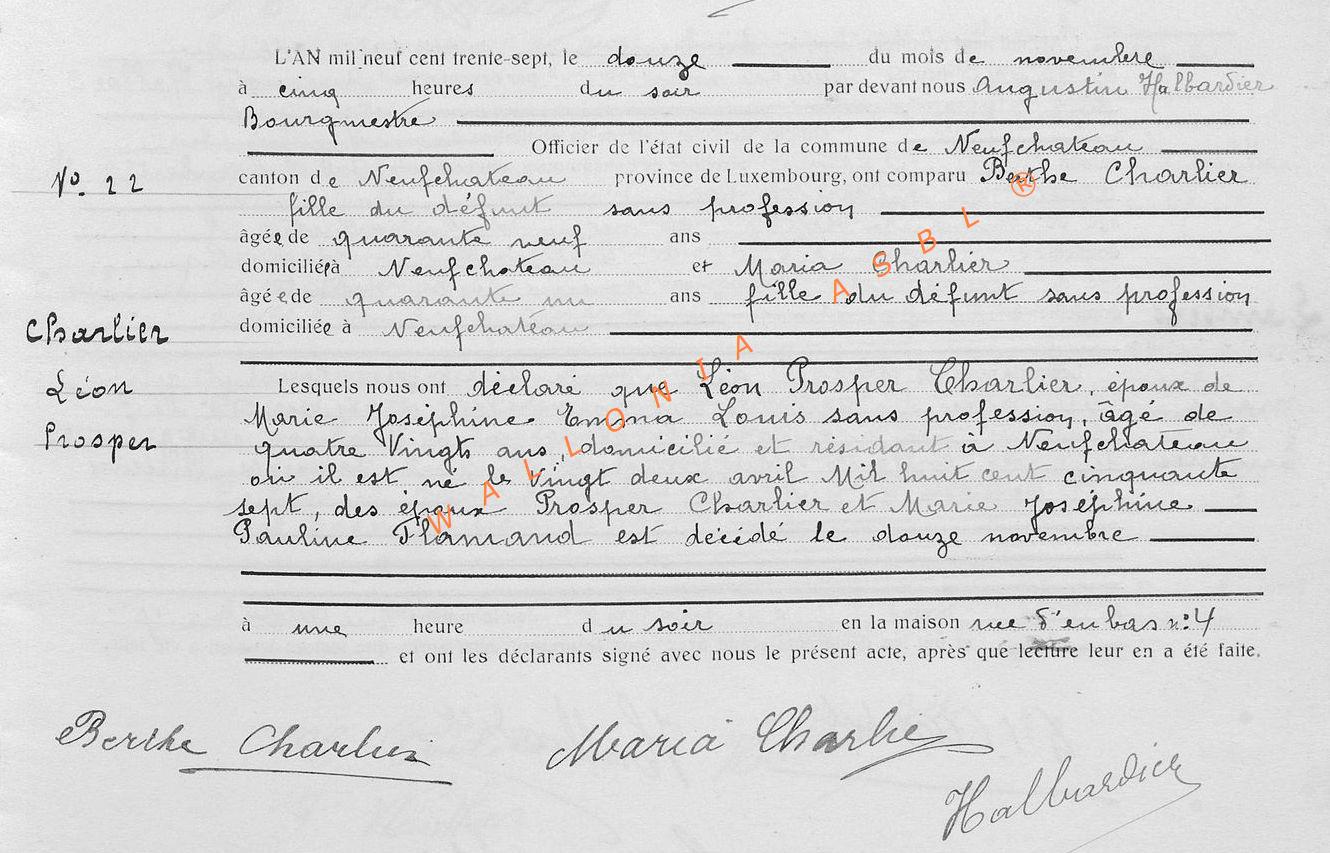 L'AN mil neuf cent trente-sept, le douze du mois de novembre
à cinq heures du soir par devant nous Augustin Halbardier
Bourgmestre
Officier de l'état civil de la commune de Neufchateau
No. 22
canton de Neufchateau province de Luxembourg, ont comparu Berthe Charlier
fille du défunt sans profession
âgée de quarante neuf ans
domiciliée à Neufchateau et Maria Charlier
âgée de quarante un ans fille du défunt sans profession
domiciliée à Neufchateau
Charlier
Léon
Prosper
Lesquels nous ont déclaré que Léon Prosper Charlier, époux de
Marie Joséphine Emma Louis sans profession, âgé de
quatre Vingts ans, domicilié et résidant à Neufchateau
où il est né le Vingt deux avril Mil huit cent cinquante
sept, des époux Prosper Charlier et Marie Joséphine
Pauline Flamand est décédé le douze novembre
à une heure du soir en la maison rue d'en bas n: 4
et ont les déclarants signé avec nous le présent acte, après que lecture leur en a été faite.
Berthe Charlier
Maria Charlier
Halbardier
WALLONIA ASBL ®